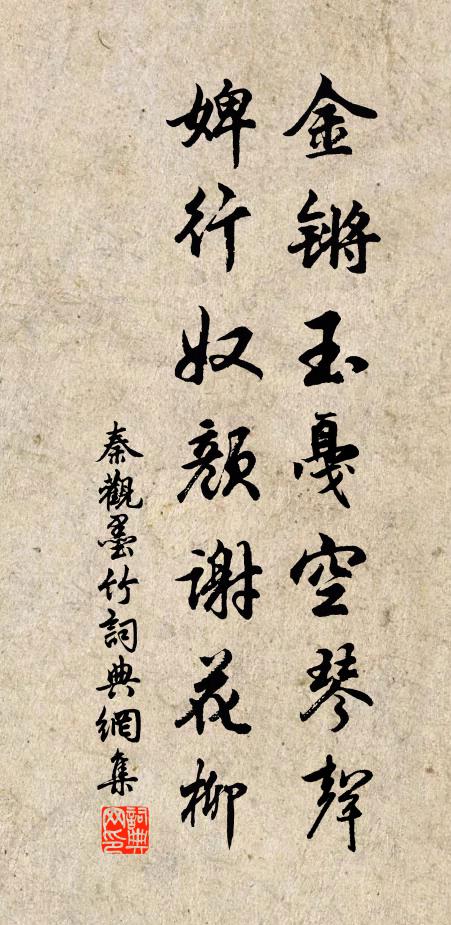 金锵玉戛空琴聲
婢行奴顏谢花柳
秦觀墨竹詞典網集
詞典网印